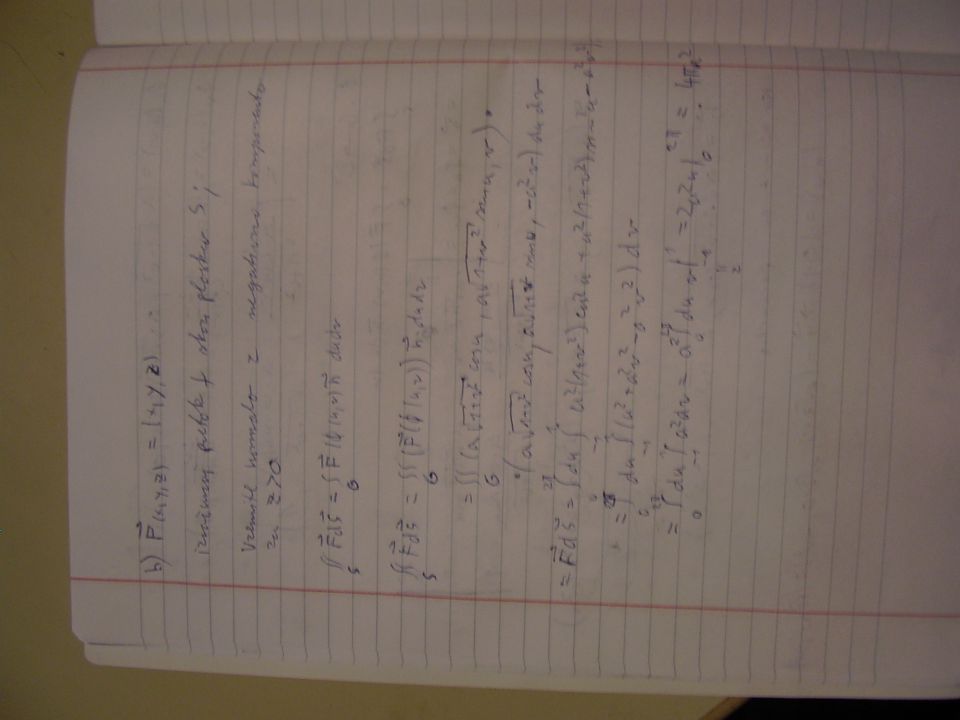 b) F⃗(x,y,z) = (x,y,z)
pretok f skoz ploskev S;
Vzemite normalo z negativno komponento
za z>0
∬_S F⃗dS⃗ = ∫_G F⃗(ϕ(u,v))n⃗ du dv
∬_S F⃗dS⃗ = ∬_G (F⃗(ϕ(u,v)) n⃗ du dv
= ∬_G (a√(1+v²) cosu, a√(1+v²) sinu, v) ·
·(a√(1+v²) cosu, a√(1+v²) sinu, -a²v) du dv
= F⃗dS⃗ = ∫_0^{2π} du ∫_{-1}^1 a²(1+v²) cos²u + a²(1+v²) sin²u - a²v²
= ∫_0^{2π} du ∫_{-1}^1 (a² + a²v² - a²v²) dv
= ∫_0^{2π} du ∫_{-1}^1 a² dv = a² ∫_0^{2π} du v|_{-1}^1 = 2a² u|_0^{2π} = 4πa²
2